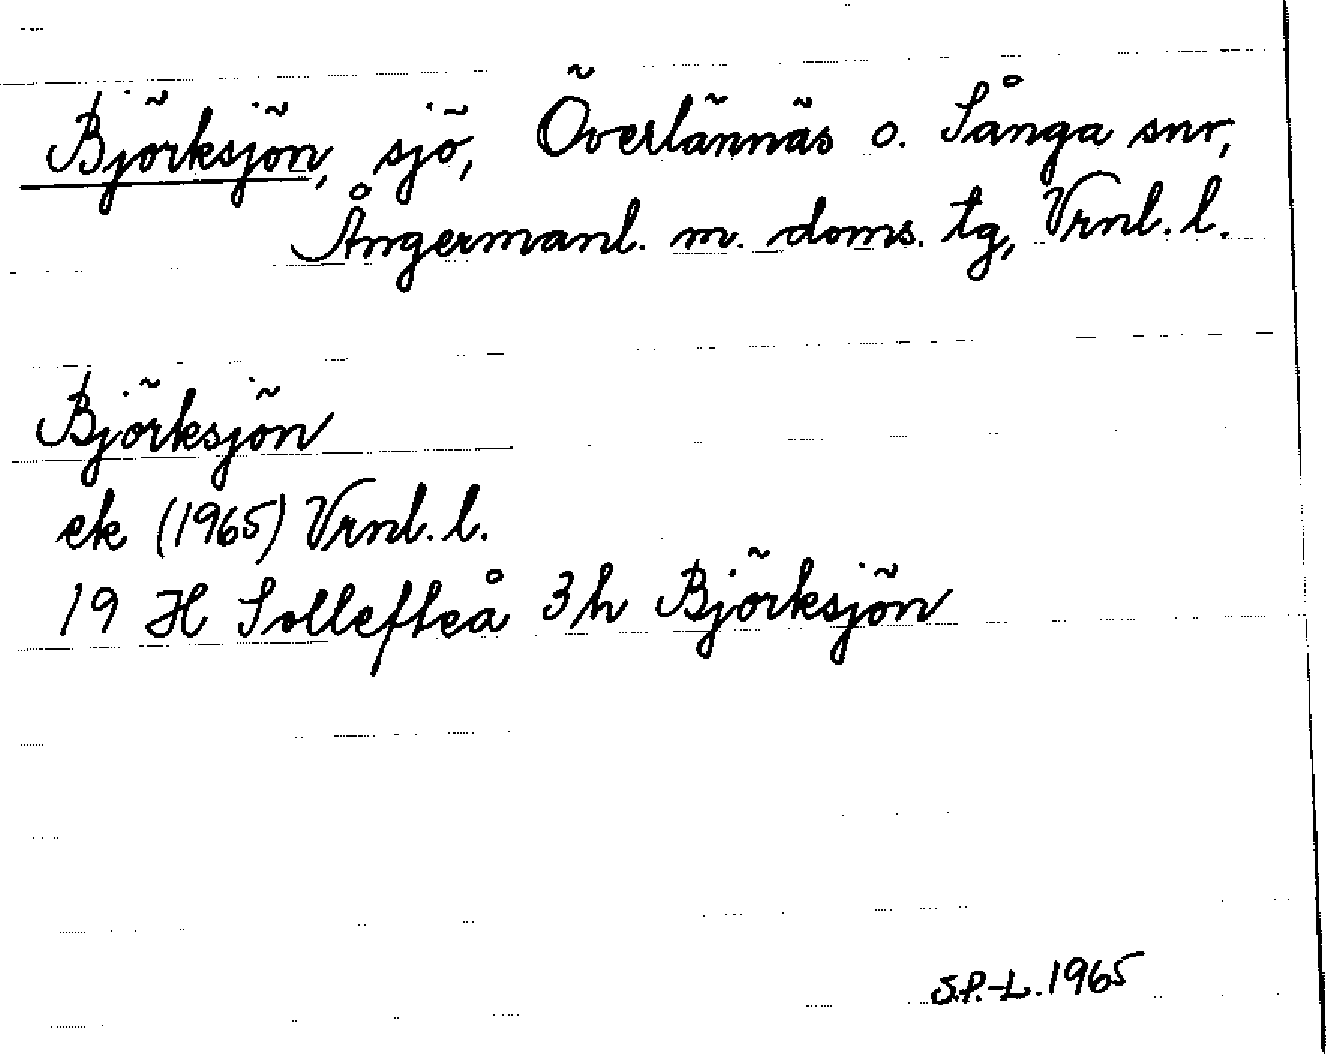 Björksjön, sjö, Överlännäs o. Sånga snr,
Ångermanl. m. doms. tg, Vrnl. l.
Björksjön
ek (1965) Vrnl. l.
19 H Sollefteå 3h Björksjön
S.P.-L. 1965